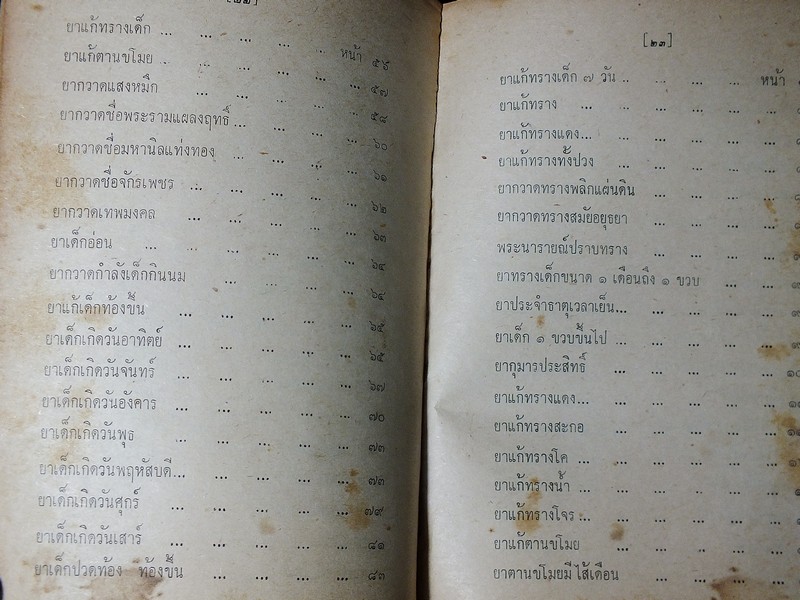 [๒๒]
ยาแก้ทรางเด็ก ... ... ... ... ... หน้า ๕๖
ยาแก้ตานขโมย ... ... ... ... ... ๕๗
ยากวาดแสงหมึก ... ... ... ... ๕๘
ยากวาดชื่อพระรามแผลงฤทธิ์ ... ... ... ... ๖๐
ยากวาดชื่อมหานิลแท่งทอง ... ... ... ... ๖๑
ยากวาดชื่อจักรเพชร ... ... ... ... ๖๒
ยากวาดเทพมงคล ... ... ... ... ๖๓
ยาเด็กอ่อน ... ... ... ... ... ๖๔
ยากวาดกำลังเด็กกินนม ... ... ... ... ๖๔
ยาแก้เด็กท้องขึ้น ... ... ... ... ๖๕
ยาเด็กเกิดวันอาทิตย์ ... ... ... ... ๖๕
ยาเด็กเกิดวันจันทร์ ... ... ... ... ๖๗
ยาเด็กเกิดวันอังคาร ... ... ... ... ... ๗๐
ยาเด็กเกิดวันพุธ ... ... ... ... ๗๓
ยาเด็กเกิดวันพฤหัสบดี... ... ... ... ... ๗๓
ยาเด็กเกิดวันศุกร์ ... ... ... ... ... ๗๙
ยาเด็กเกิดวันเสาร์ ... ... ... ... ... ๘๑
ยาเด็กปวดท้อง ท้องขึ้น ... ... ... ... ๘๓
[๒๓]
ยาแก้ทรางเด็ก ๗ วัน ... ... ... ... หน้า
ยาแก้ทราง ... ... ... ... ...
ยาแก้ทรางแดง... ... ... ... ...
ยาแก้ทรางทั้งปวง ... ... ... ... ...
ยากวาดทรางพลิกแผ่นดิน ... ... ... ...
ยากวาดทรางสมัยอยุธยา ... ... ... ...
พระนารายณ์ปราบทราง ... ... ... ...
ยาทรางเด็กขนาด ๑ เดือนถึง ๑ ขวบ ... ... ...
ยาประจำธาตุเวลาเย็น... ... ... ... ...
ยาเด็ก ๑ ขวบขึ้นไป ... ... ... ... ...
ยากุมารประสิทธิ์ ... ... ... ... ...
ยาแก้ทรางแดง... ... ... ... ...
ยาแก้ทรางสะกอ ... ... ... ... ...
ยาแก้ทรางโค ... ... ... ... ...
ยาแก้ทรางน้ำ ... ... ... ... ...
ยาแก้ทรางโจร ... ... ... ... ...
ยาแก้ตานขโมย ... ... ... ... ...
ยาตานขโมยมีไส้เดือน ... ... ... ...